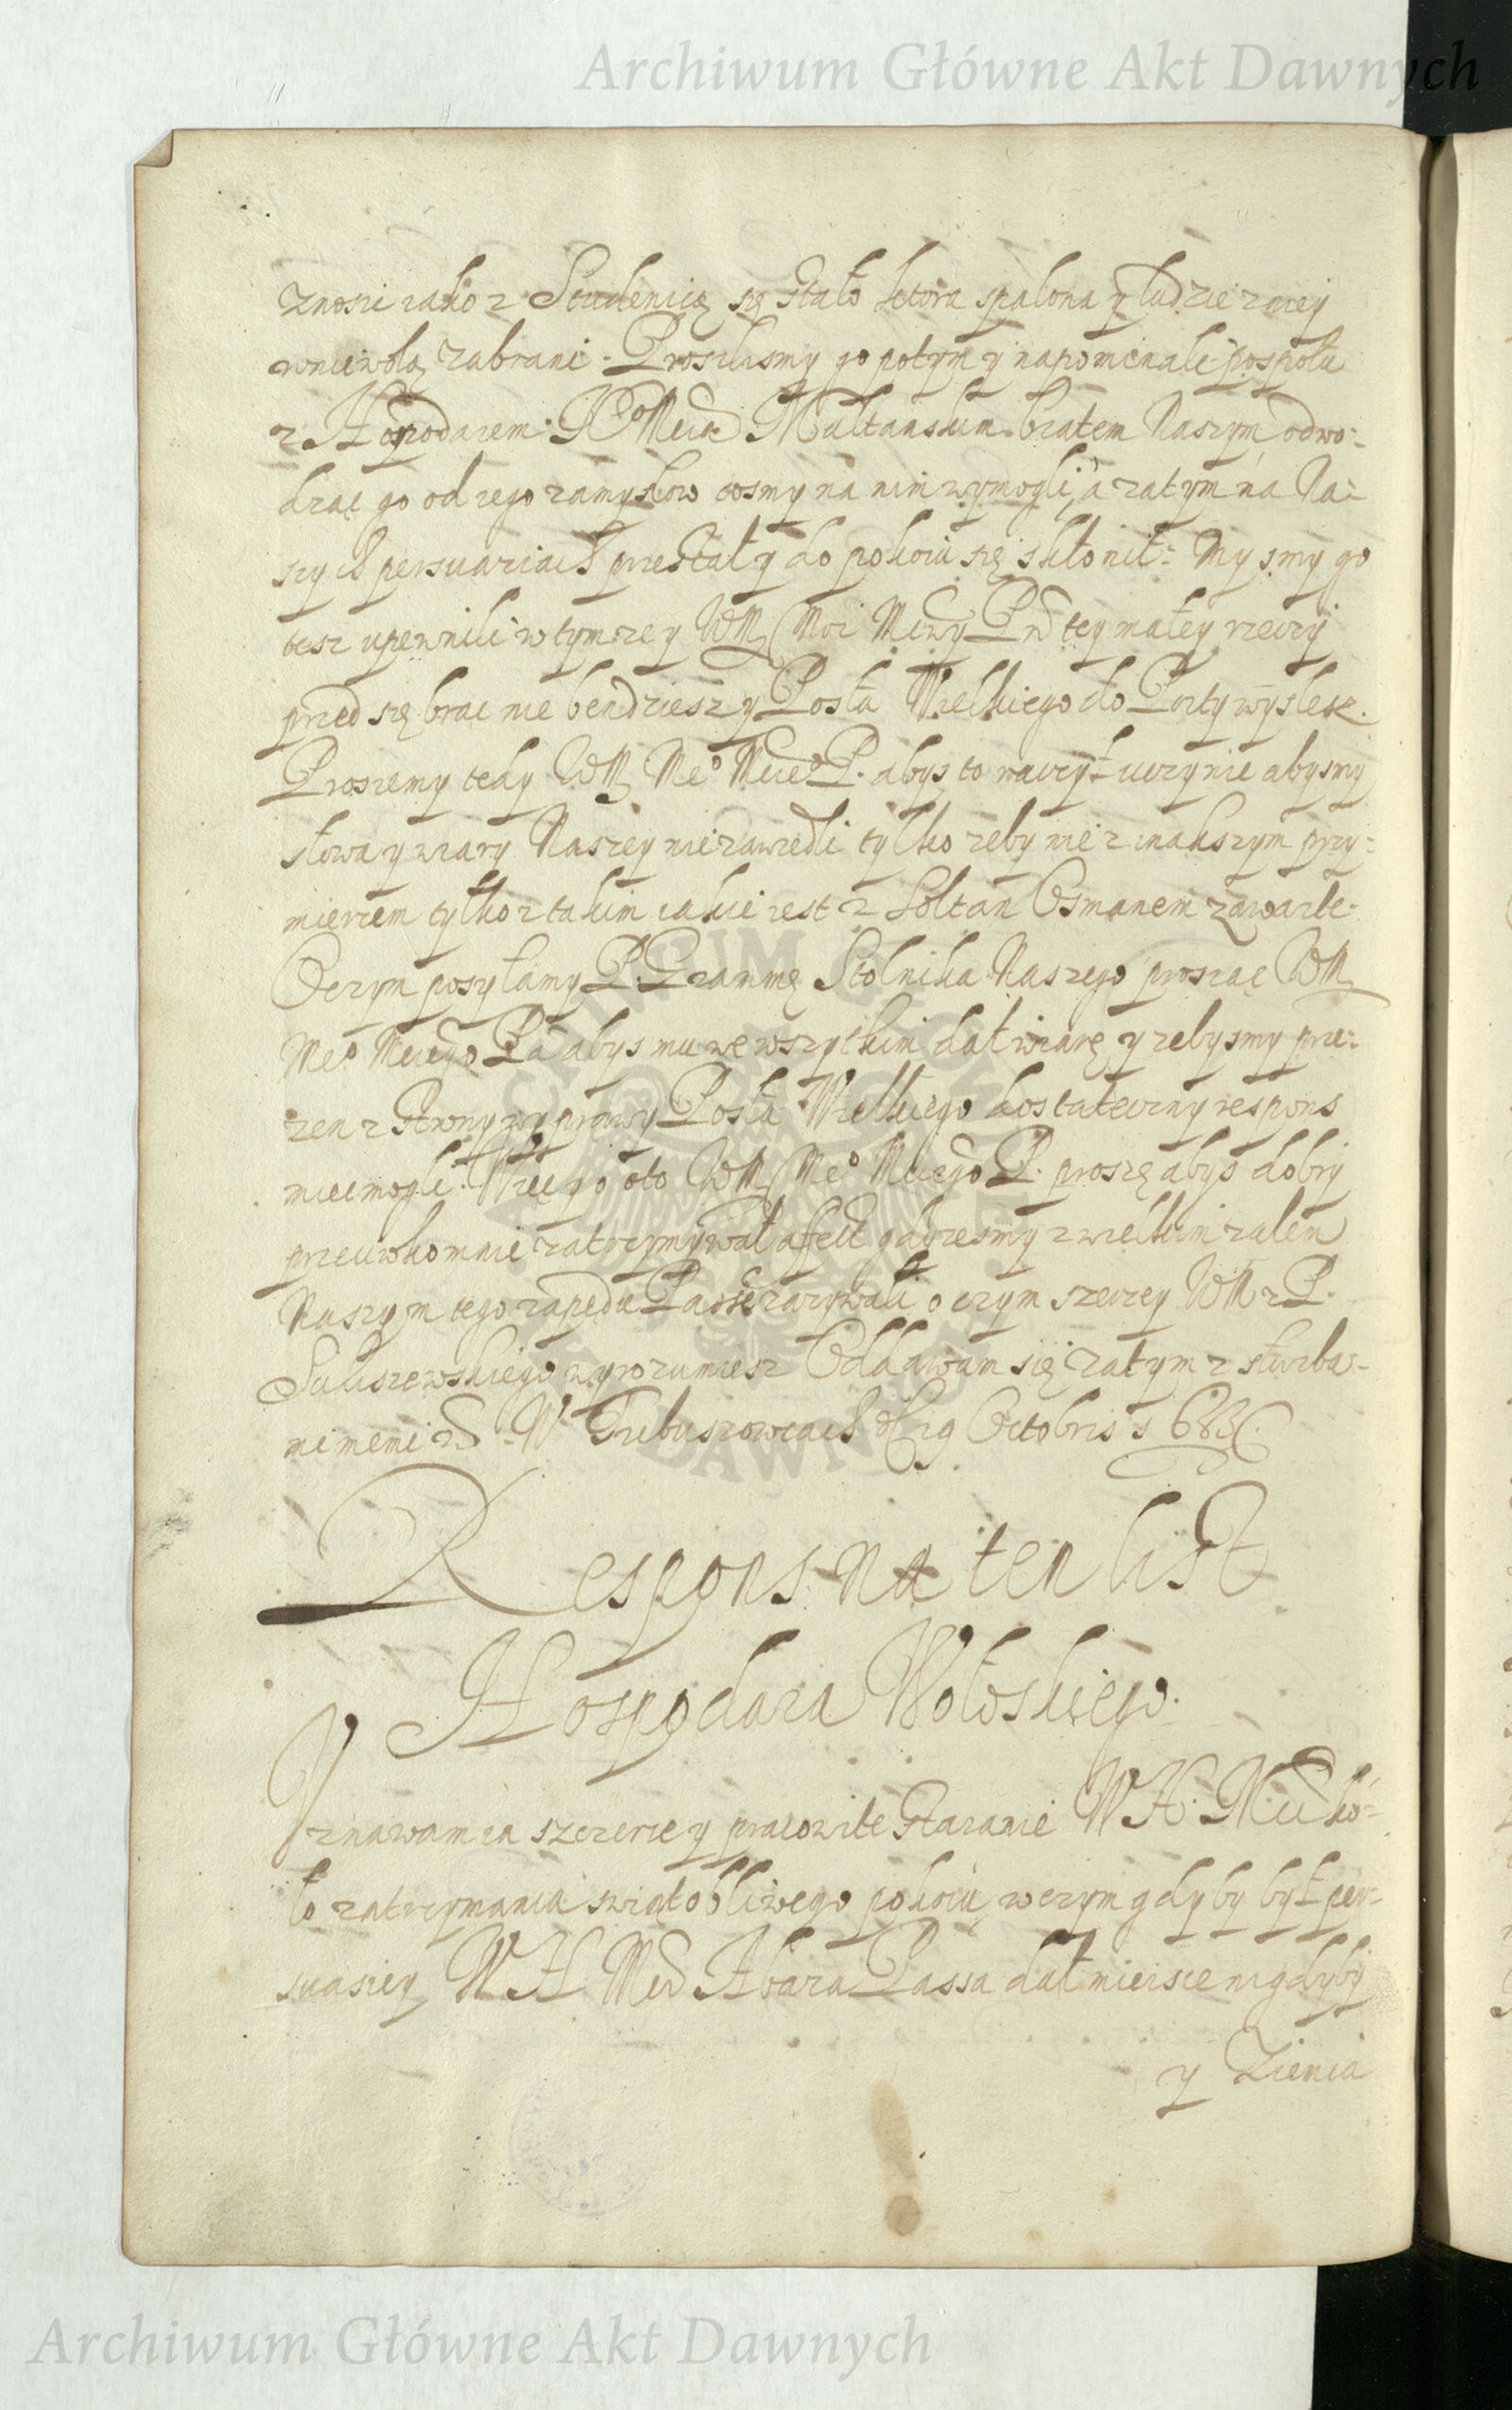 Archiwum Główne Akt Dawnych
znosic iako z Studenicą się stało ktora spalona y ludzie z niey
wniewolą zabrani. Prosilismy go potym y napominali pospołu
z Hospodarem Multanskim bratem Naszym odwo-
dząc go od tego zamysłow cosmy na nim wymogli, a zatym na Na-
szych persuaziach przestał y do pokoiu się skłonił. Mysmy go
tesz upewnili w tym ze y WM Moi Mciwy P w tey małey rzeczy
przed się brac nie bendziesz y Posła Wielkiego do Porty wyslesz.
Prosiemy tedy WM Meo Mciego P. abys to raczył uczynic abysmy
słowa y wiary Naszey nie zawiedli tylko zeby nie z inakszym przy-
mierzem tylko z takim iakie iest z Sołtan Osmanem zawarte.
O czym posyłamy P. Stolnika Naszego prosząc WM
Meo Mciego Pa abys mu we wszytkim dał wiarę y zebysmy prze-
zen z strony wyprawy Posła Wielkiego dostateczny respons
miec mogli. Przy tym WM Meo Mciego P. proszę abys dobry
przeciwko mnie zatrzymywał afekt gdyzesmy z wielkim zalem
Naszym tego zapędu Passe zazywali o czym szerzey WM z P.
wyrozumiesz Oddawam się zatym z służba-
mi memi W Octobris 1633
Respons na ten list
Hospodara Wołoskiego.
Uznawam ia szczere y pracowite staranie WH. Mci ko-
ło zatrzymania swiątobliwego pokoiu, w czym gdyby był per-
suasiey WH Mci Abaza Passa dał mieisce nigdyby
y Ziemia
Archiwum Główne Akt Dawnych